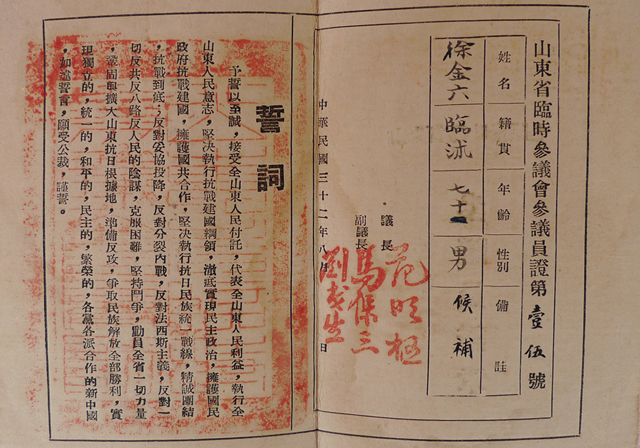 山東省臨時參議會參議員證第壹伍號
姓名 籍貫 年齡 性別 備註
徐金六 臨沭 七十一 男 候補
議長 范明樞
副議長 馬保三
劉民生
中華民國三十二年八月 日
誓詞
予誓以至誠，接受全山東人民付託，代表全山東人民利益，執行全
山東人民意志，堅决執行抗戰建國綱領，澈底實現民主政治，擁護國民
政府抗戰建國，擁護國共合作，堅决執行抗日民族統一戰線，精誠團結
，抗戰到底；反對妥協投降，反對分裂內戰，反對法西斯主義，反對一
切反共反八路反人民的陰謀，克服困難，堅持鬥爭，動員全省一切力量
，鞏固與擴大山東抗日根據地，準備反攻，爭取民族解放全部勝利，實
現獨立的，統一的，和平的，民主的，繁榮的，各黨各派合作的新中國
，如違誓言，願受公裁，謹誓。